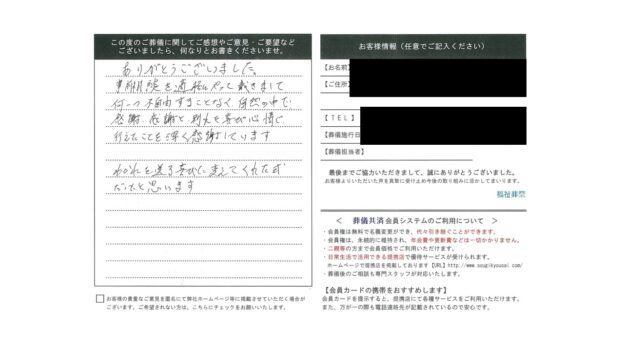 この度のご葬儀に関してご感想やご意見・ご要望など
ございましたら、何なりとお書きくださいませ。
ありがとうございました。
事前相談を適格にやって戴きまして
何一つ不自由することなく自然の中で
感謝、感謝と別れを喜び心情で
行えたことを深く感謝しています
わかれを送る喜びに ましてくれた式
だったと思います
お客様の貴重なご意見を匿名にて弊社ホームページ等に掲載させていただく場合が
ございます。ご希望されない方は、こちらにチェックをお願いします。
お客様情報（任意でご記入ください）
【お名前】
【ご住所】
【ＴＥＬ】
【葬儀施行日】
【葬儀担当者】
最後までご協力いただきまして、誠にありがとうございました。
お客様よりいただいた声を真摯に受け止め今後の取り組みに活かしてまいります。
福祉葬祭
＜ 葬儀共済 会員システムのご利用について ＞
・会員権は無料で名義変更ができ、代々引き継ぐことができます。
・会員権は、永続的に維持され、年会費や更新費などは一切かかりません。
・二親等の方まで会員価格でご利用いただけます。
・日常生活で活用できる提携店で優待サービスが受けられます。
ホームページで提携店を掲載しております【URL】http://www.sougikyousai.com/
・葬儀後のご相談も専門スタッフが対応いたします。
【会員カードの携帯をおすすめします】
会員カードを提示すると、提携店にて各種サービスをご利用いただけます。
また、万が一の際も電話連絡先が記載されているので安心です。